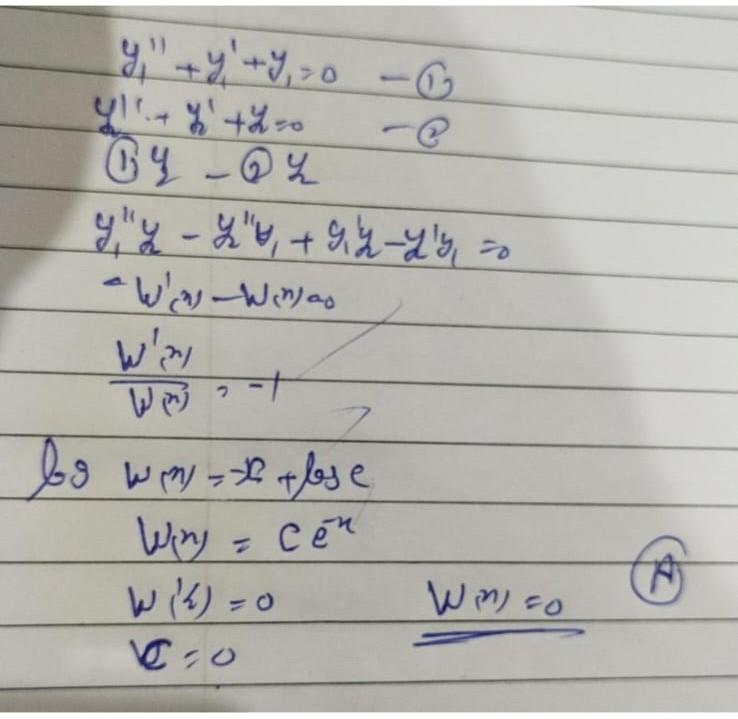 y₁'' + y₁' + y₁ = 0 — ①
y₂'' + y₂' + y₂ = 0 — ②
① y₂ — ② y₁
y₁'' y₂ - y₂'' y₁ + y₁' y₂ - y₂' y₁ = 0
- W'(x) - W(x) = 0
W'(x) / W(x) = -1
log W(x) = -x + log c
W(x) = c e^-x
W(1/2) = 0 W(x) = 0 Ⓐ
C = 0